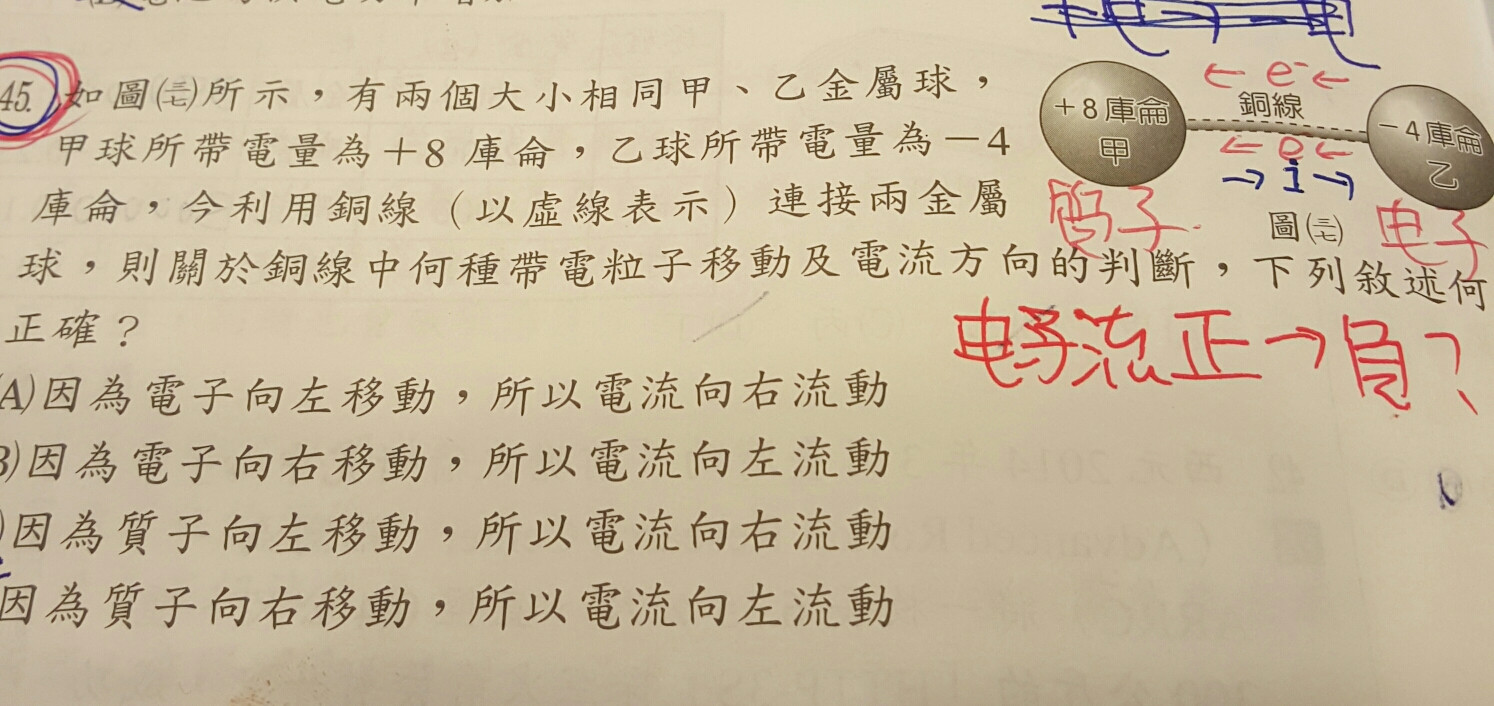 45.如圖(三七)所示，有兩個大小相同甲、乙金屬球，
甲球所帶電量為＋8 庫侖，乙球所帶電量為－4
庫侖，今利用銅線（以虛線表示）連接兩金屬
球，則關於銅線中何種帶電粒子移動及電流方向的判斷，下列敘述何
正確？
A)因為電子向左移動，所以電流向右流動
B)因為電子向右移動，所以電流向左流動
)因為質子向左移動，所以電流向右流動
因為質子向右移動，所以電流向左流動
← e⁻ ←
＋8 庫侖
甲
銅線
－4 庫侖
乙
← e ←
→ i →
圖(三七)
电子
电子流正→負?